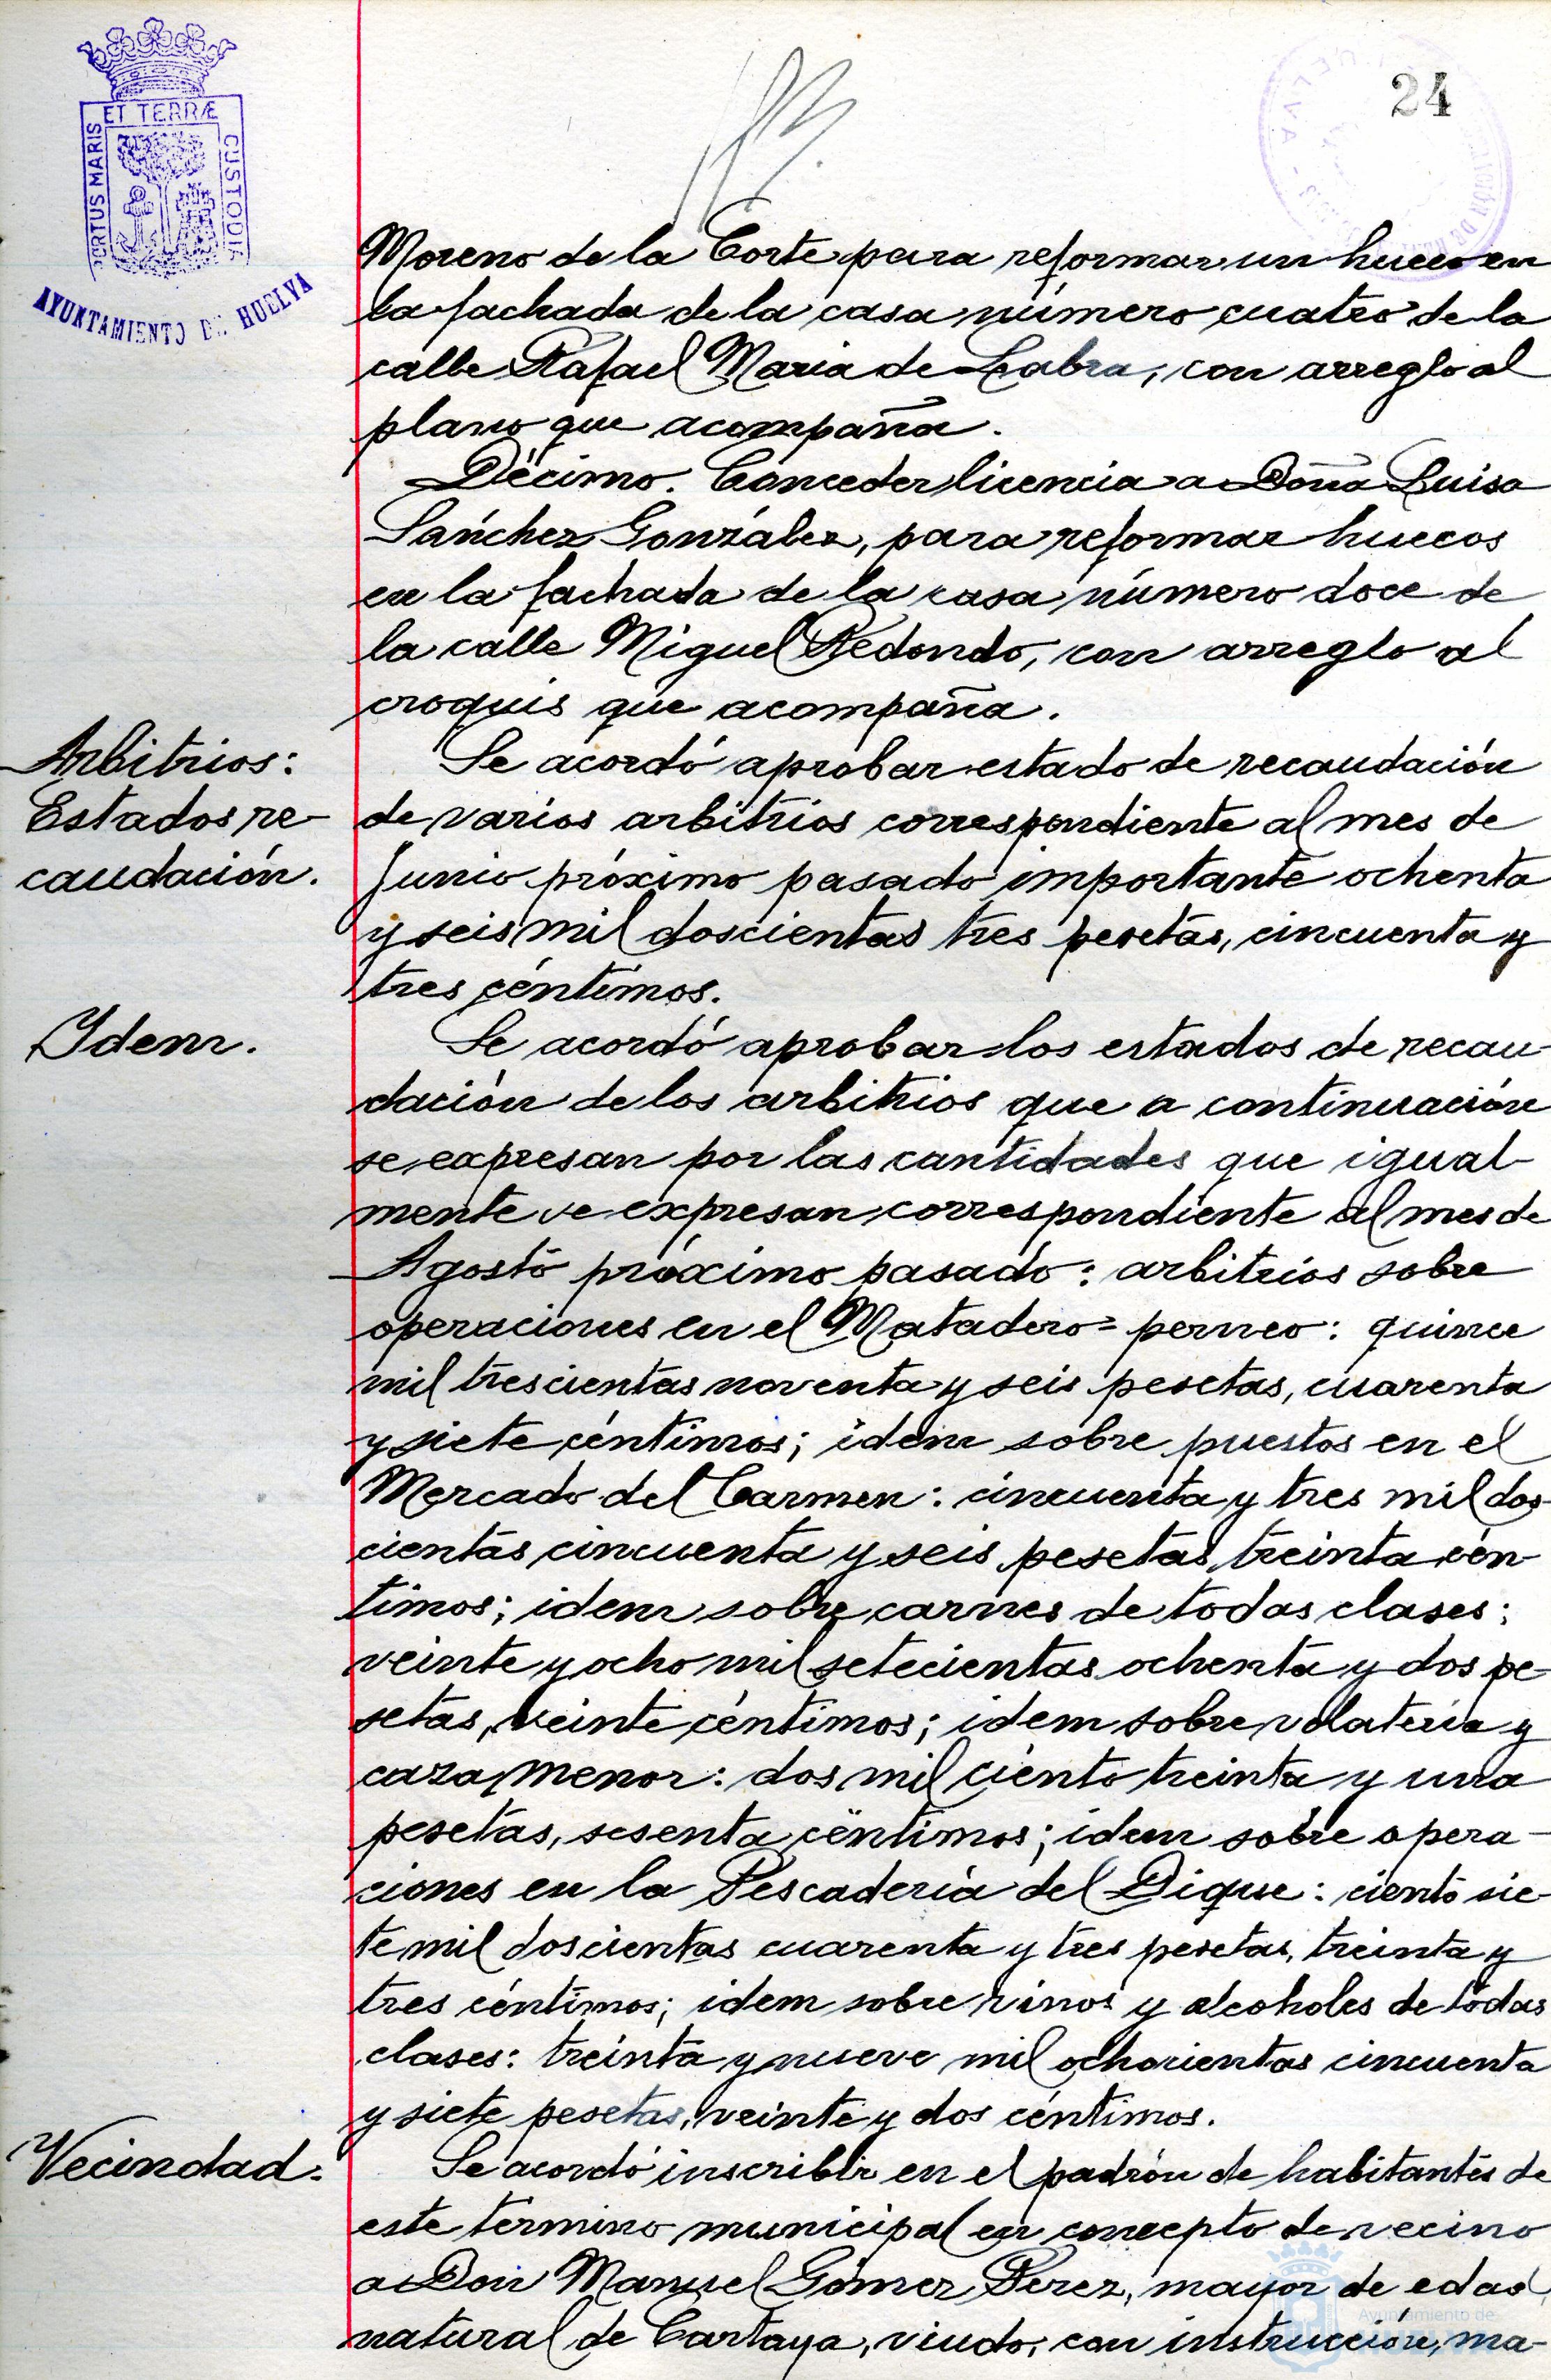 ET TERRÆ
PORTUS MARIS
CUSTODIA
AYUNTAMIENTO DE HUELVA
24
Moreno de la Corte para reformar un hueco en
la fachada de la casa número cuatro de la
calle Rafael Maria de Labra, con arreglo al
plano que acompaña.
Décimo. Conceder licencia a Doña Luisa
Sánchez González, para reformar huecos
en la fachada de la casa número doce de
la calle Miguel Redondo, con arreglo al
croquis que acompaña.
Arbitrios:
Estados re-
caudación.
Se acordó aprobar estado de recaudación
de varios arbitrios correspondiente al mes de
Junio próximo pasado importante ochenta
y seis mil doscientas tres pesetas, cincuenta y
tres céntimos.
Idem.
Se acordó aprobar los estados de recau-
dación de los arbitrios que a continuación
se expresan por las cantidades que igual-
mente se expresan correspondiente al mes de
Agosto próximo pasado: arbitrios sobre
operaciones en el Matadero = perneo: quince
mil trescientas noventa y seis pesetas, cuarenta
y siete céntimos; idem sobre puestos en el
Mercado del Carmen: cincuenta y tres mil dos-
cientas cincuenta y seis pesetas, treinta cén-
timos; idem sobre carnes de todas clases:
veinte y ocho mil setecientas ochenta y dos pe-
setas, veinte céntimos; idem sobre volateria y
caza menor: dos mil ciento treinta y una
pesetas, sesenta céntimos; idem sobre opera-
ciones en la Pescaderia del Dique: ciento sie-
te mil doscientas cuarenta y tres pesetas, treinta y
tres céntimos; idem sobre vinos y alcoholes de todas
clases: treinta y nueve mil ochocientas cincuenta
y siete pesetas, veinte y dos céntimos.
Vecindad.
Se acordó inscribir en el padrón de habitantes de
este término municipal en concepto de vecino
a Don Manuel Gómez Perez, mayor de edad,
natural de Cartaya, viudo, con instrucción, ma-
Ayuntamiento de
HUELVA